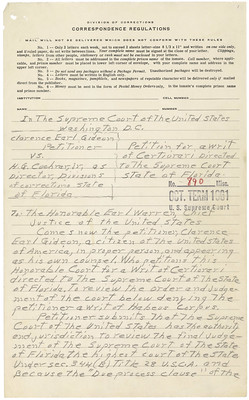 DIVISION OF CORRECTIONS
CORRESPONDENCE REGULATIONS
MAIL WILL NOT BE DELIVERED WHICH DOES NOT CONFORM WITH THESE RULES
No. 1 -- Only 2 letters each week, not to exceed 2 sheets letter-size 8 1/2 x 11" and written on one side only, and if ruled paper, do not write between lines.
No. 2 -- All letters must be addressed in the complete prison name of the inmate. Cell number, where applicable, and prison number must be placed in lower left corner of envelope, with your complete name and address in the upper left corner.
No. 3 --
No. 4 -- Letters must be written in English only.
No. 5 -- Books, magazines, pamphlets, and newspapers of reputable character will be delivered only if mailed direct from the publisher.
No. 6 -- Money must be sent in the form of Postal Money Orders only, in the inmate's complete prison name and prison number.
INSTITUTION CELL NUMBER
NAME NUMBER
In The Supreme Court of The United States
Washington D.C.
Clarence Earl Gideon,
Petitioner
vs.
H.G. Cochran, Jr., as
Director, Divisions
of corrections State
of Florida
Petition for a writ
of Certiorari Directed
to The Supreme Court
State of Florida.
No. 790 Misc.
OCT. TERM 1961
U. S. Supreme Court
To: The Honorable Earl Warren, Chief
Justice of the United States
Comes now the petitioner, Clarence
Earl Gideon, a citizen of the United states
of America, in proper person, and appearing
as his own counsel. Who petitions this
Honorable Court for a Writ of Certiorari
directed to The Supreme Court of the State
of Florida, To review the order and Judge-
ment of the court below denying The
petitioner a writ of Habeus Corpus.
Petitioner submits That The Supreme
Court of The United States has The authority
and jurisdiction to review The final Judge-
ment of The Supreme Court of The State
of Florida the highest court of The State
Under sec. 344(B) Title 28 U.S.C.A. and
Because The "Due process clause" of the